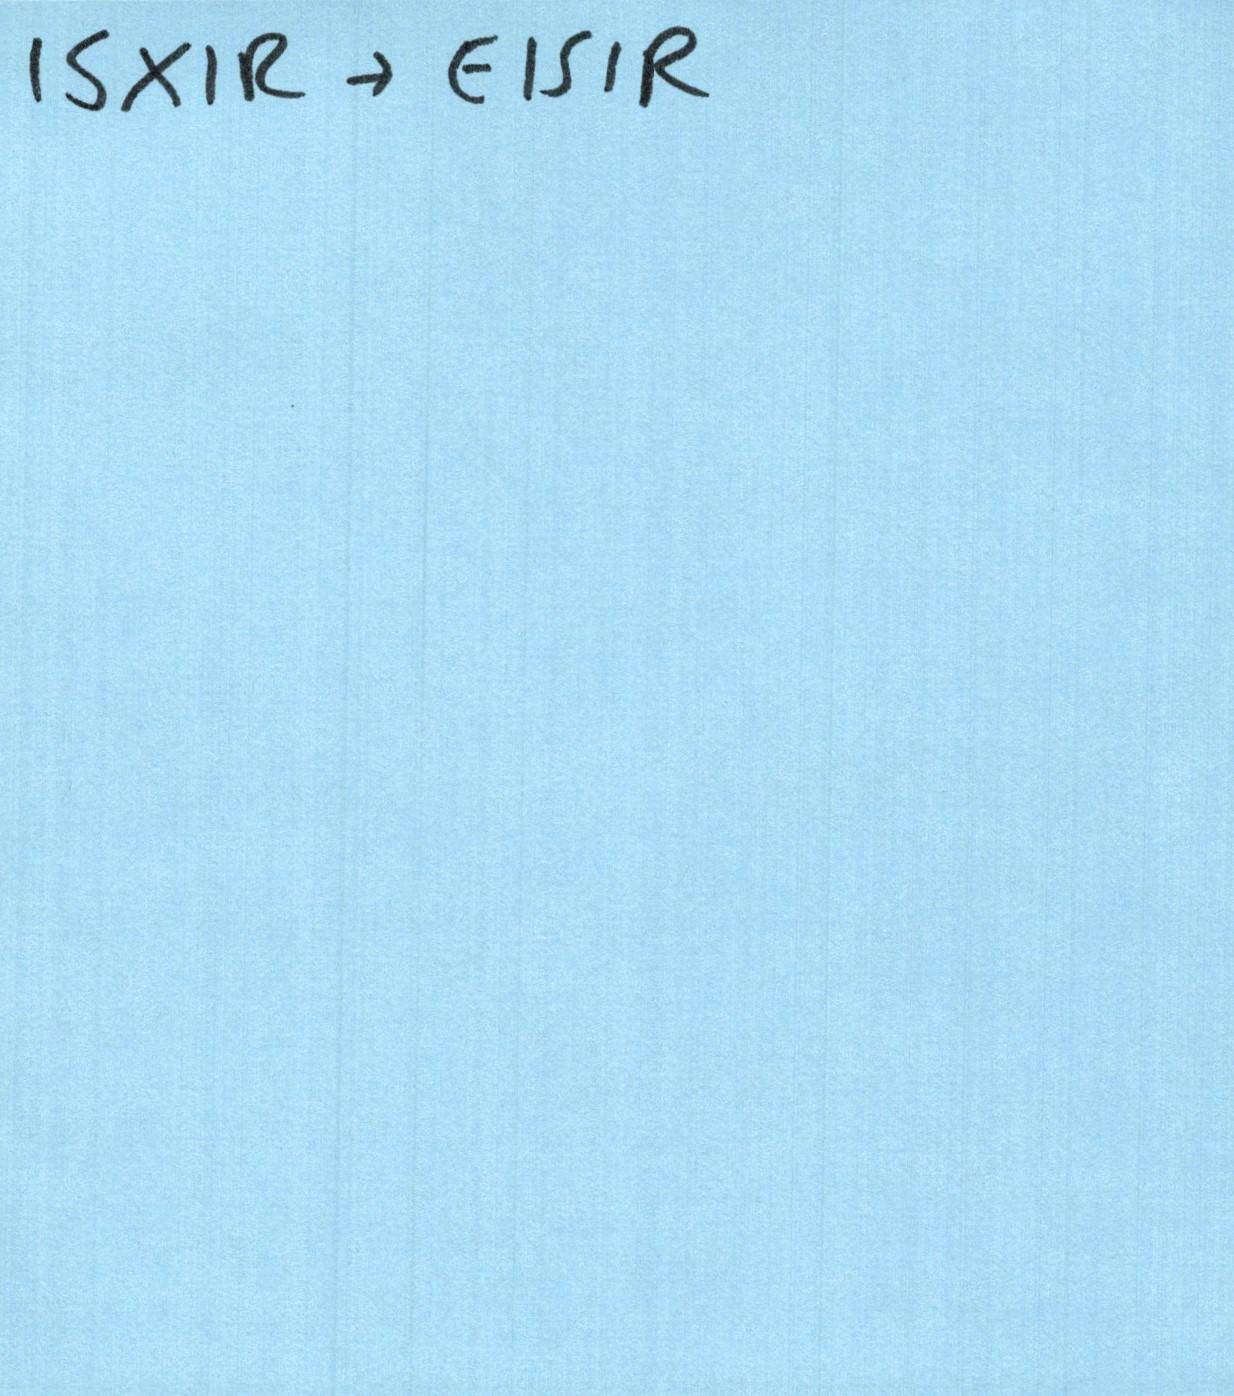 ISXIR → EISIR